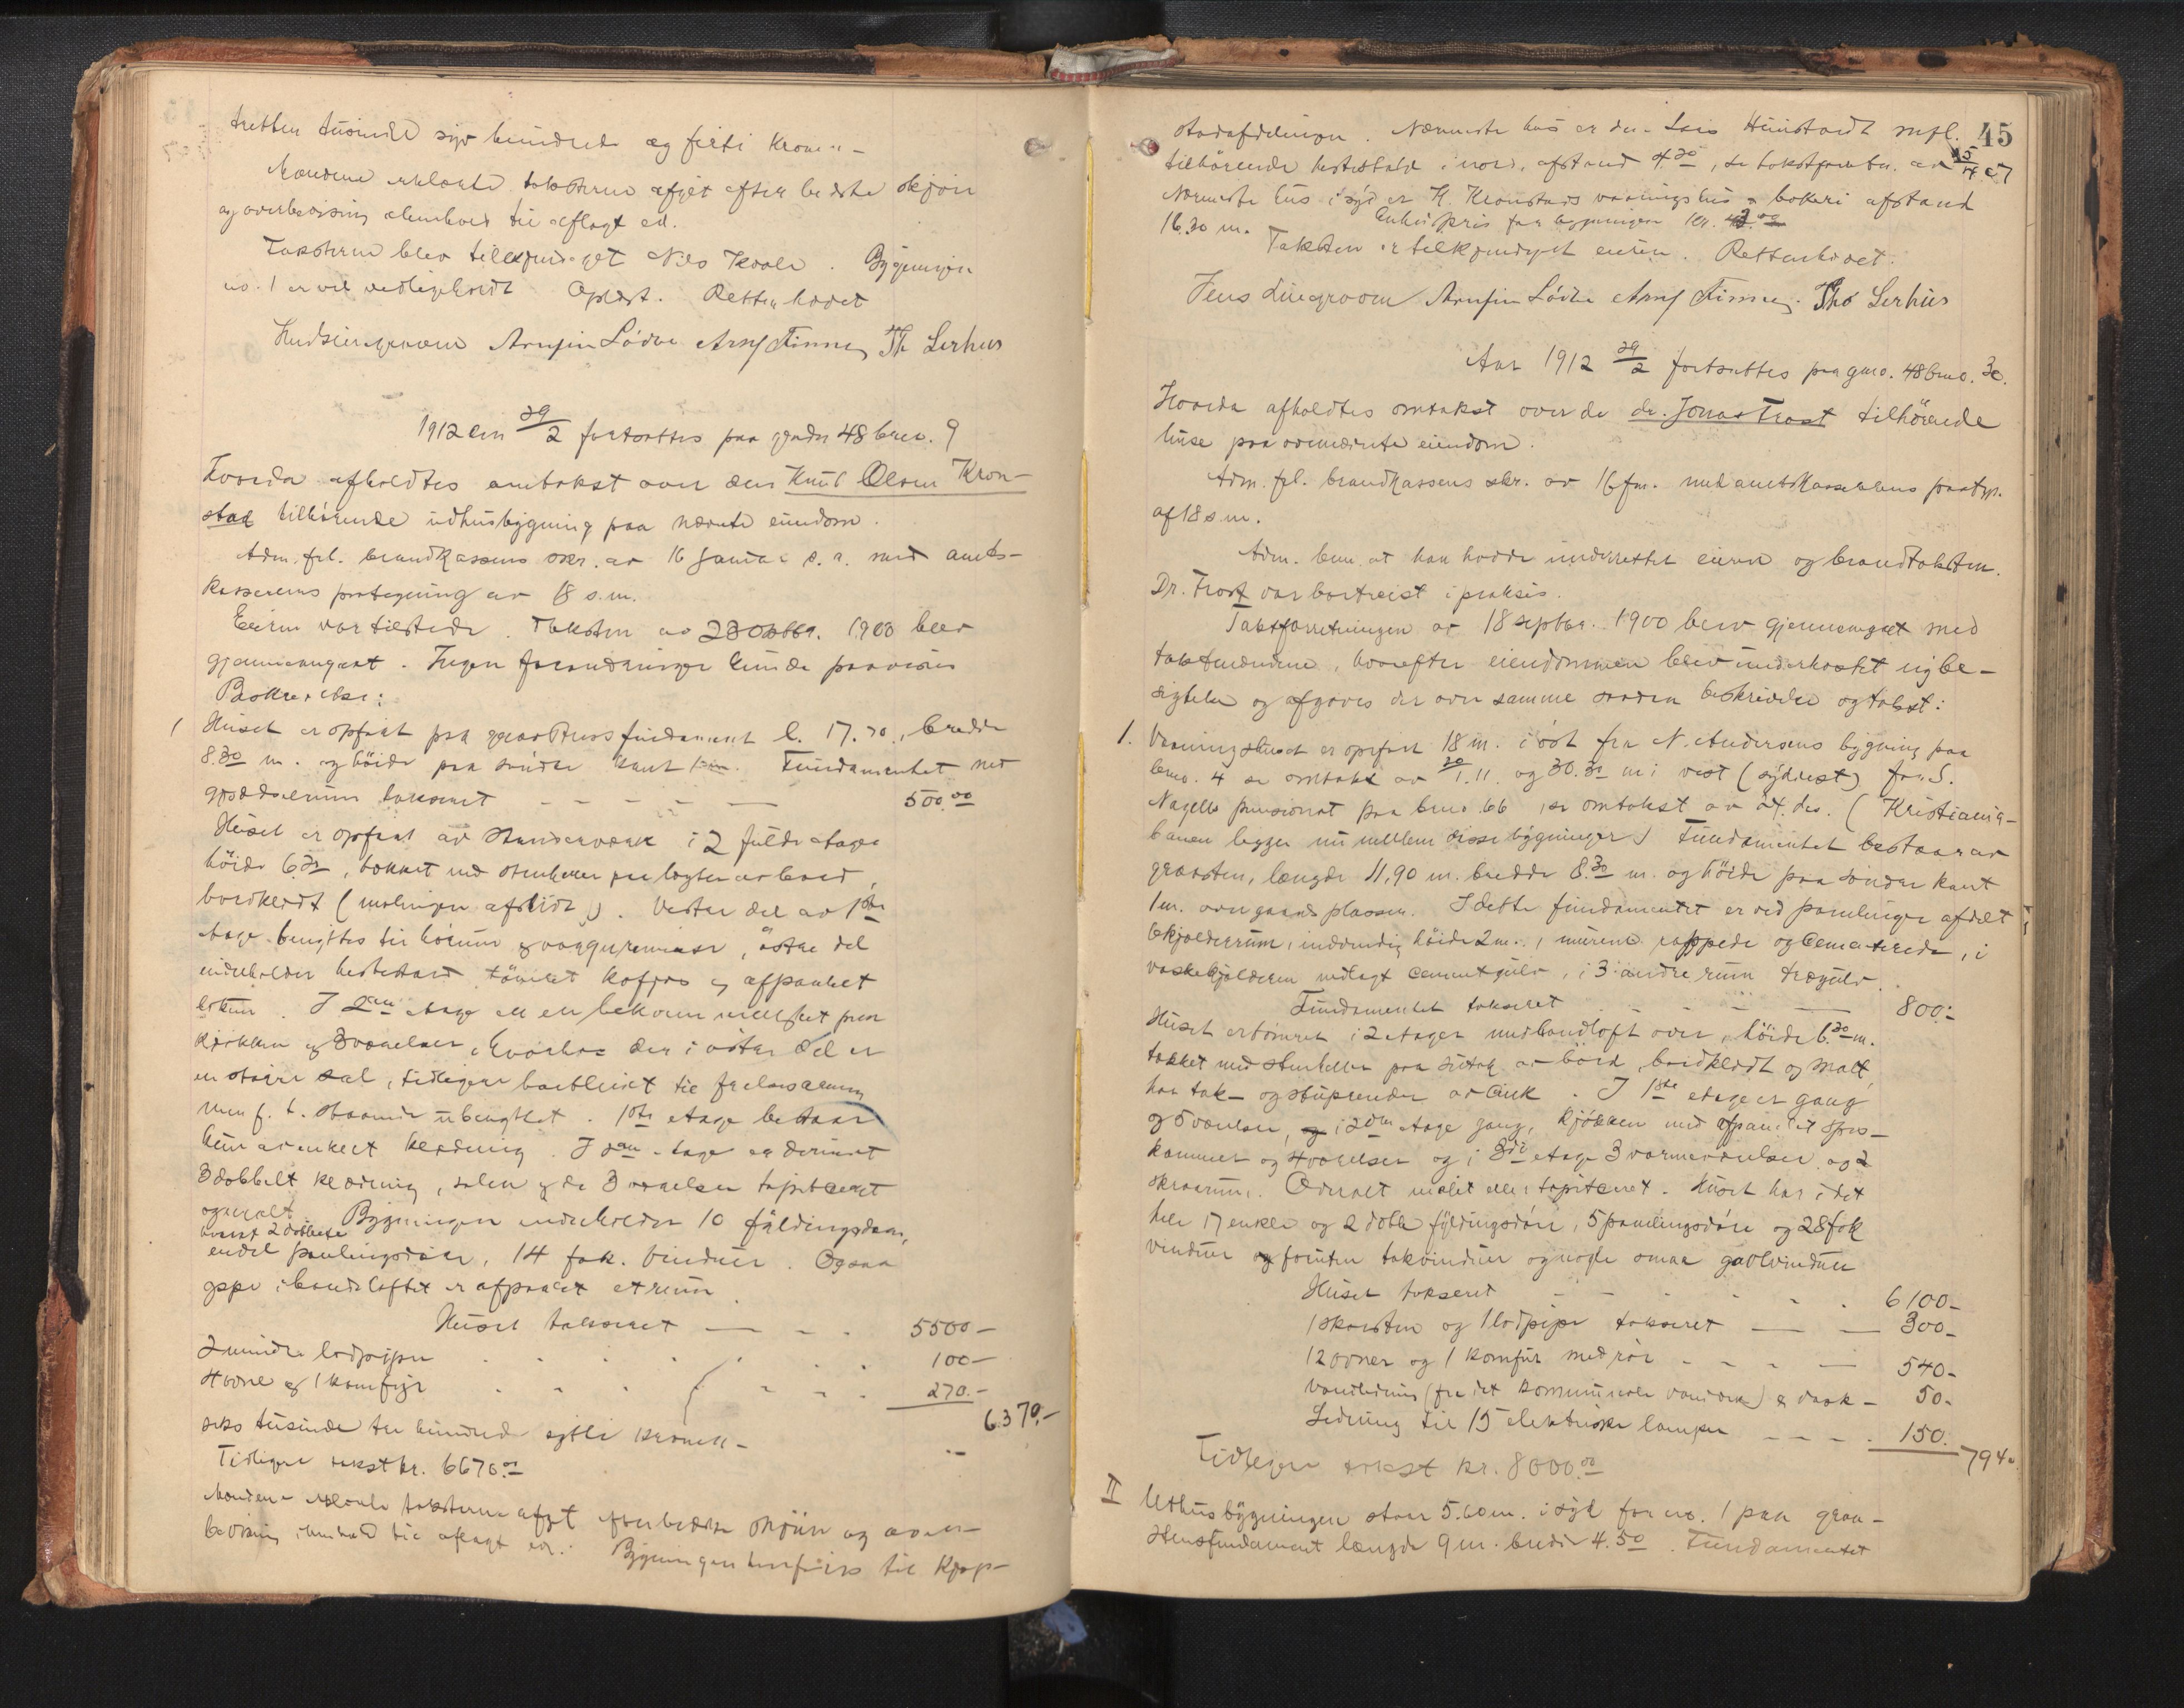 tretten tusinde syv hundrede og firti Kroner -
Mændene erklærte taksterne afgit efter bedste skjøn
og overbevisning i henhold til aflagt ed.
Taksterne blev tilkjendegit Nils Kvale. Bygningen
no. 1 er vel vedligeholdt. Oplæst. Retten hævet
Arnfin Lödve Arnf Finne Th Lerhus
1912 den 29/2 fortsattes paa gaardsnr 48 bno. 9
Hvorda afholdtes omtakst over den Knut Olsen Kron-
stad tilhörende udhusbygning paa nævnte eiendom.
Adm. frl. brandkassens skr. av 16 januar d. a. med amts-
kassererens paategning av 18 s. m.
Eieren var tilstede. Taksten av 23 Oktbr. 1900 blev
gjennemgaat. Ingen forandringer kunde paavises
Beskrivelse:
1 Huset er opført paa graastens fundament l. 17.70, bredde
8.30 m. og höide paa söndre kant 1 m. Fundamentet med
gjødselrum taksert - - - - 500.00
Huset er opført av stenderverk i 2 fulde etager
höide 6.20, tækket med stenheller paa lægter av bord,
bordklædt (malingen afslidt). Vestre del av 1ste
etage benyttes til hörum og vognremisse, östre del
indeholder hestestald tömret kofjøs og afpanelet
. I 2den etage er en bekvemmelighet paa
kjøkken og 3 værelser, hvorhos der i östre del er
en större sal, tidligere bortleiet til frelsesarmeen
men f. t. staaende ubenyttet. 1ste etage bestaar
kun av enkelt klædning. I 2den etage er derimot
3 dobbelt klædning, salen og de 3 værelser tapetseret
og malt. Bygningen indeholder 10 fyldingsdøre,
hvorav 2 dobbelte
endel panelingsdøre, 14 fak. vinduer. Ogsaa
oppe i handloftet er afpanelet et rum.
Huset takseret - - - 5500 -
2 mindre lodpiper 100 -
4 ovne og 1 komfyr 270.-
6370.-
seks tusinde tre hundrede sytti kroner -
Tidligere takst kr. 6670.00
Mændene erklærte taksterne afgit efter bedste skjøn og over-
bevisning i henhold til aflagt ed. Bygningen henføres til Kjøp-
45
stadafdelingen. Nærmeste hus er den Lars Hunstadt mfl.
tilhörende hestestald i nord, afstand 4.20, se takstforretn. av
Nærmeste hus i syd er K. Kronstads vaaningshus og bakeri afstand
16.30 m. Enhedspris for bygningen kr.
Taksten er tilkjendegit eieren. Retten hævet.
Jens Lindegroom Arnfin Lödve Arnf Finne. Tho Lerhus
Aar 1912 29/2 fortsattes paa gno. 48 bno. 30.
Hvorda afholdtes omtakst over de dr. Jonas Frost tilhörende
huse paa ovennævnte eiendom.
Adm. frl. brandkassens skr. av 16 f. m. med amtskassererens paategn.
af 18 s. m.
Adm. bem. at han havde underrettet eieren og brandtakstm.
Dr. Frost var bortreist i praksis.
Takstforretningen av 18 septbr. 1900 blev gjennemgaat med
takstmændene, hvorefter eiendommen blev underkastet nöi be-
sigtelse og afgaves der over samme saadan beskrivelse og takst:
1. Vaaningshuset er opført 18 m. i öst fra N. Andersens bygning paa
bno. 4 se omtakst av 30/1.11. og 30.30 m i vest (sydvest) fra S.
Nagells pensionat paa bno. 66, se omtakst av dds. (Kristiania-
banen ligger nu mellem disse bygninger) Fundamentet bestaar av
graasten, længde 11,90 m. bredde 8.30 m. og höide paa söndre kant
1 m. over gaardsplassen. I dette fundamentet er ved panelinger afdelt
6 kjælderrum, indvendig höide 2 m., murene rappede og cementerede, i
vaskekjælderen nedlagt cementgulv, i 3 andre rum trægulv.
Fundamentet takseret - - - 800.-
Huset er tömret i 2 etager med handloft over, höide 6.30 m.
tækket med stenheller paa sutag av bord, bordklædt og malt,
har tak- og stuprender av zink. I 1ste etage er gang
og 5 værelser, i 2den etage gang, kjøkken med afpanelet spis-
kammer og 4 værelser og i 3die etage 3 varmeværelser og 2
skraarum. Overalt malet eller tapetseret. Huset har i det
hele 17 enkle og 2 doble fyldingsdøre, 5 panelingsdøre og 28 fak
vinduer foruten takvinduer og nogle smaa gavlvinduer
Huset takseret - - - 6100 -
1 skorsten og 1 lodpipe takseret - - 300 -
12 ovner og 1 komfur med rör - - - 540 -
Vandledning (fra det kommunale vandverk) & vask - 50 -
Ledning til 15 elektriske lamper - - - 150.
7940
Tidligere takst kr. 8000.00
II Uthusbygningen staar 5.60 m. i syd for no. 1 paa graa-
stensfundament længde 9 m. bredde 4.50. Fundamentet